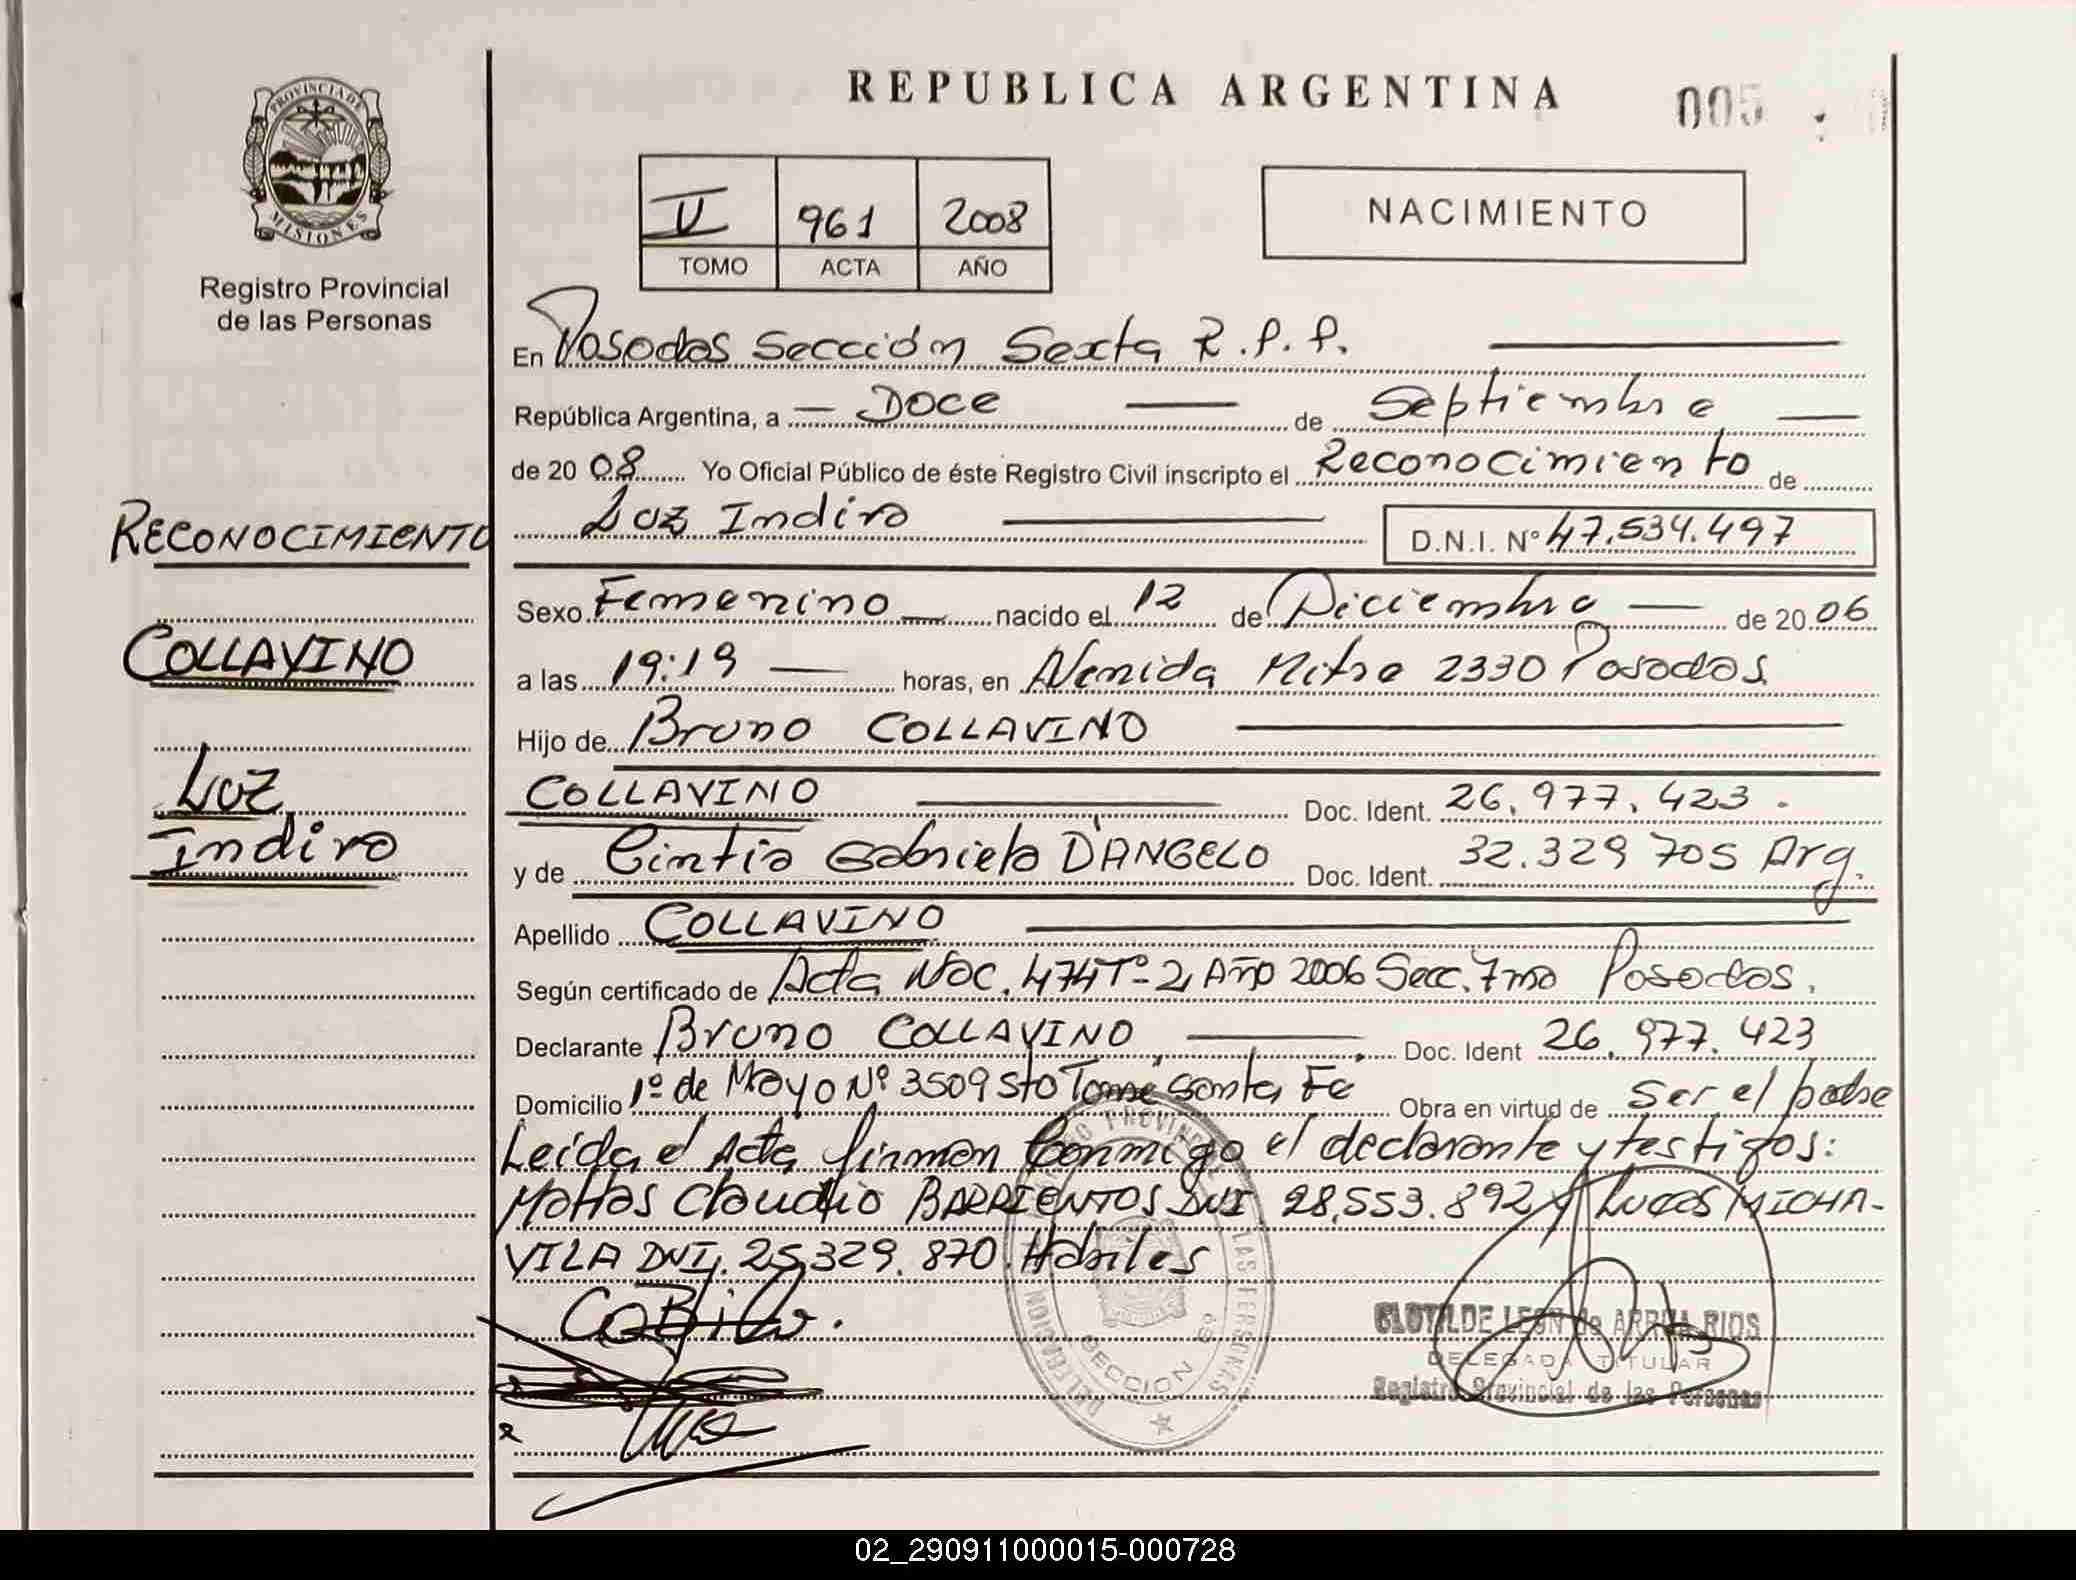 REPUBLICA ARGENTINA
005
PROVINCIA DE
MISIONES
Registro Provincial
de las Personas
II 961 2008
TOMO ACTA AÑO
NACIMIENTO
En Posadas Sección Sexta R.P.P.
República Argentina, a Doce de Septiembre
de 20 08 Yo Oficial Público de éste Registro Civil inscripto el Reconocimiento de
Luz Indira D.N.I. N° 47.534.497
RECONOCIMIENTO
COLLAVINO
Luz
Indira
Sexo Femenino nacido el 12 de Diciembre de 20 06
a las 19:19 horas, en Avenida Mitre 2330 Posadas.
Hijo de Bruno COLLAVINO
COLLAVINO Doc. Ident. 26.977.423.
y de Cintia Gabriela D'ANGELO Doc. Ident. 32.329 705 Arg.
Apellido COLLAVINO
Según certificado de Acta Nac. 474 T°-2, Año 2006 Secc. 7ma Posadas.
Declarante Bruno COLLAVINO Doc. Ident 26.977.423
Domicilio 1º de Mayo Nº 3509 Sto Tomé Santa Fe Obra en virtud de ser el padre
Leída el Acta firman conmigo el declarante y testigos:
Matías Claudio BARRIENTOS DNI 28.553.892 y Lucas MICHA-
VILA DNI. 25.329.870. Hábiles
CLOTILDE LEON de ARRUA RIOS
DELEGADA TITULAR
Registro Provincial de las Personas
DELEGACION SECCION 6ª
02_290911000015-000728